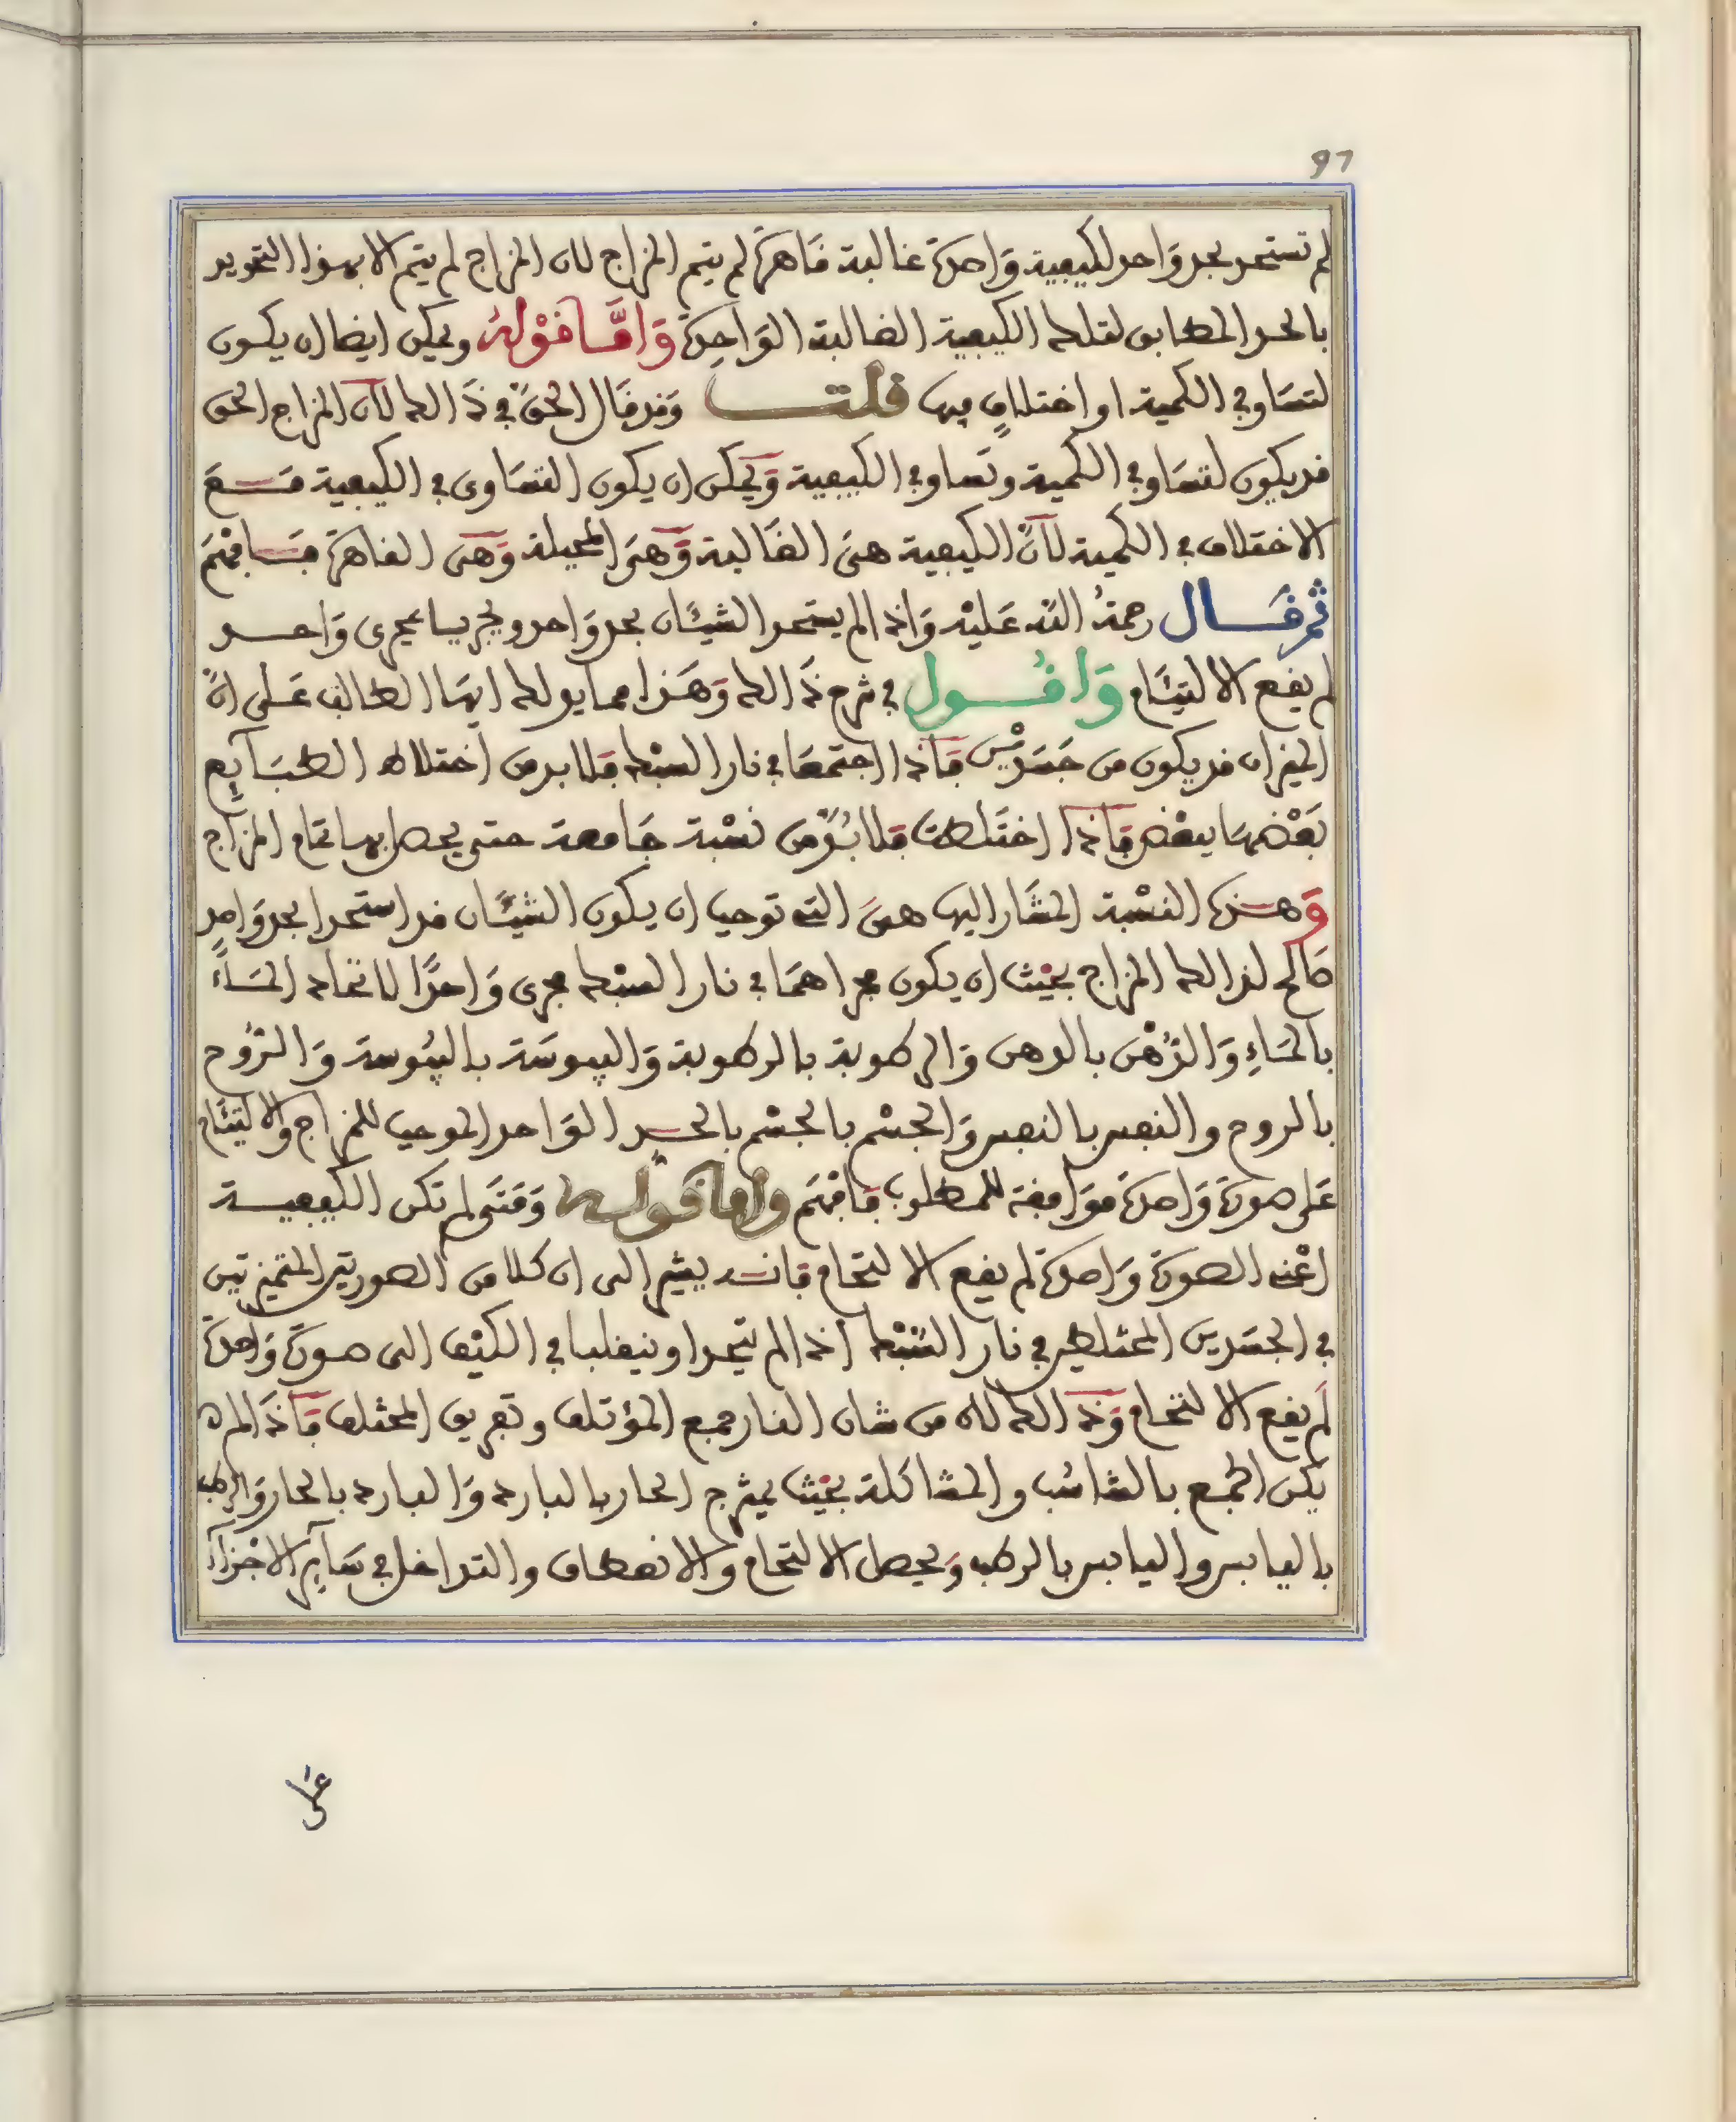 97
لم تستحد بحد واحد لكيفية واحدة غالبة قاهرة لم يتم المزاج لان المزاج لم يتم الا بهذا التحديد
بالحد المطابق لتلك الكيفية الغالبة الواحدة وَامَّا قَوْلُه ويمكن ايضا ان يكون
لتساو في الكمية او اختلاف فيها قلت وقد قال الحق في ذالك لان المزاج الحق
قد يكون لتساو في الكمية وتساو في الكيفية ويمكن ان يكون التساوى في الكيفية مع
الاختلاف في الكمية لانّ الكيفية هى الغالبة وهى المحيلة وهى القاهرة فافهم
ثم قال رحمة الله عليه واذا لم يستحد الشيئان بحد واحد ويجريا مجرى واحد
لم يقع الالتيئام واقول في شرح ذالك وهذا مما يدلك ايها الطالب على انّ
الميزان قد يكون من جسدين فاذا اجتمعا في نار السبك فلا بد من اختلاط الطبايع
بعضها ببعض فاذا اختلطت فلا بدّ من نسبة جامعة حتى يحصل بها تمام المزاج
وهذه النسبة المشار اليها هى التى توجب ان يكون الشيئان قد استحدا بحد واحد
صالح لذالك المزاج بحيث ان يكون مجراهما في نار السبك مجرى واحدًا لاتحاد الماء
بالماء والدهن بالدهن والرطوبة بالرطوبة واليبوسة باليبوسة والروح
بالروح والنفس بالنفس والجسم بالجسم بالحد الواحد الموجب للمزاج والالتيئام
على صورة واحدة موافقة للمطلوب فافهم واما قوله ومتى لم تكن الكيفية
اعنى الصورة واحدة لم يقع الالتحام فانه يشير الى ان كلا من الصورتين المتميزتين
في الجسدين المختلطين في نار السبك اذا لم يتحدا وينقلبا في الكيف الى صورة واحدة
لم يقع الالتحام وذالك لان من شان النار جمع المؤتلف وتفريق المختلف فاذا لم
يكن الجمع بالتناسب والمشاكلة بحيث يمتزج الحار بالبارد والبارد بالحار والرطب
باليابس واليابس بالرطب ويحصل الالتحام والانعطاف والتداخل في سآير الاجزاء
على